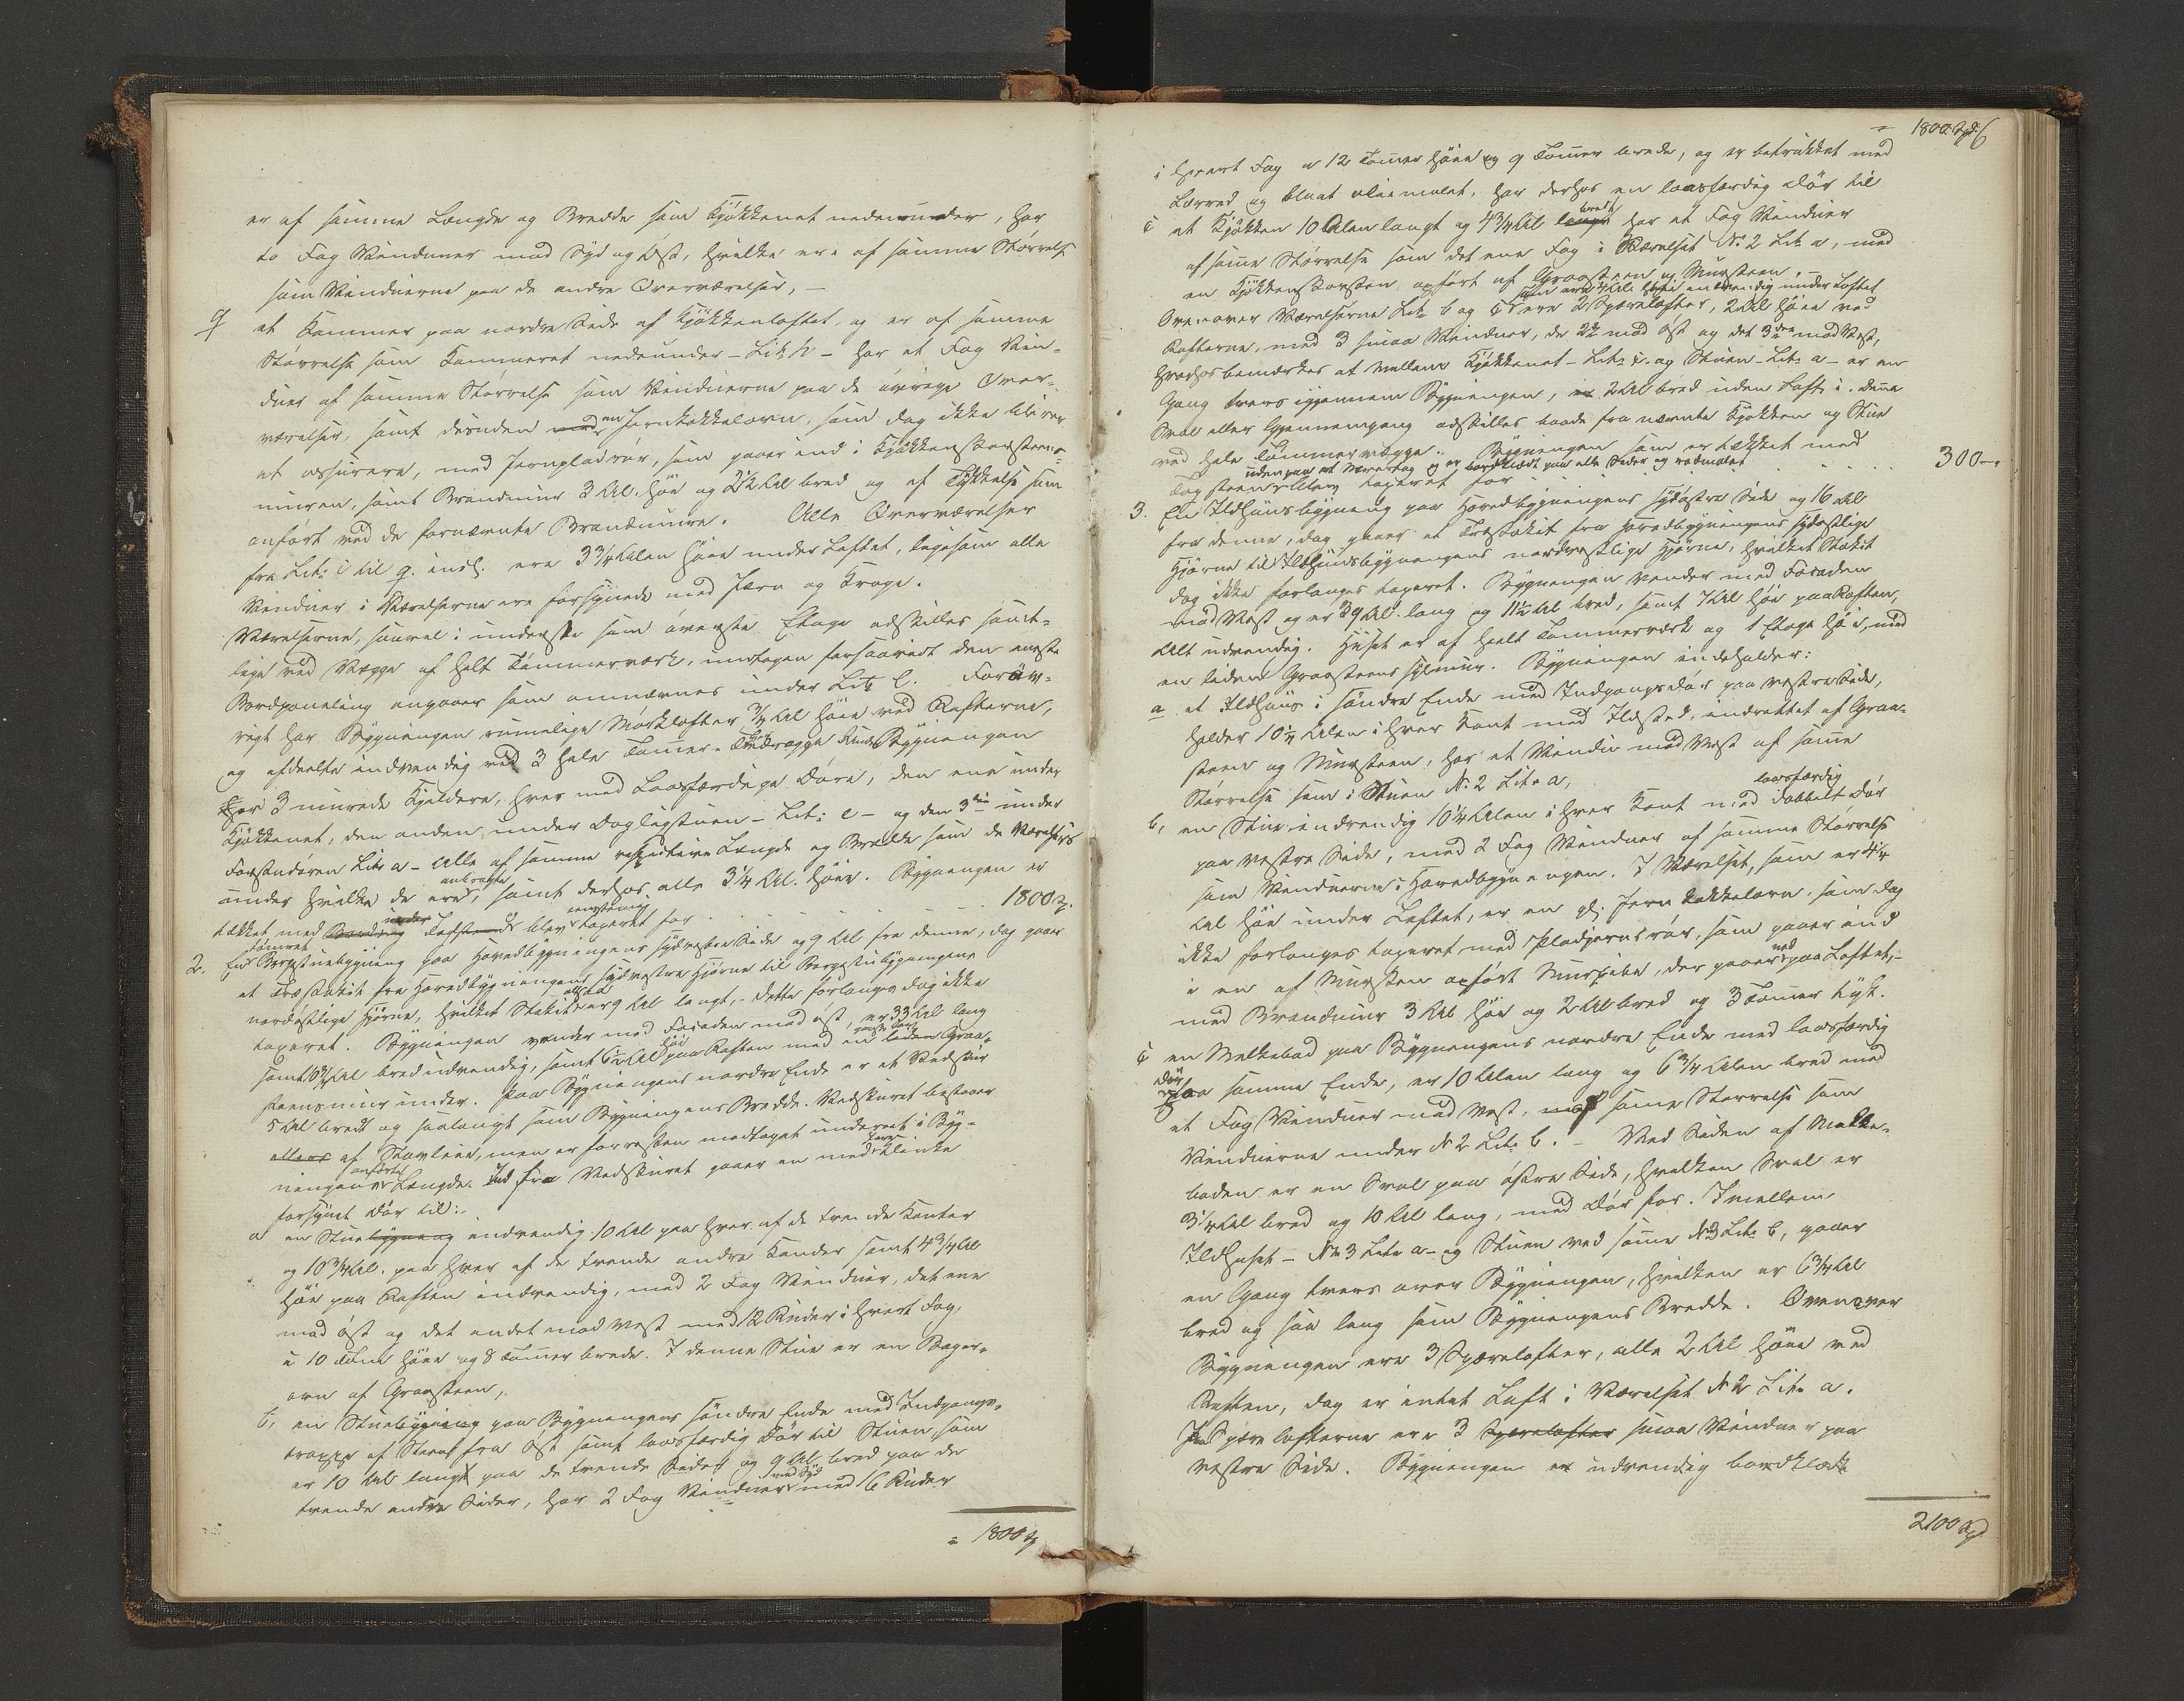 er af samme Længde og Bredde som Kjøkkenet nedenunder, har
to Fag Vinduer mod Syd og Øst, hvilke ere af samme Størrelse
som Vinduerne paa de andre Overværelser, —
q et Kammer paa nordre Side af Kjøkkenloftet, og er af samme
Størrelse som Kammeret nedenunder – Lit: h – har et Fag Vin-
duer af samme Størrelse som Vinduerne paa de øvrige Over-
værelser, samt desuden med en Jernkakkelovn, som dog ikke bliver
at assurere, med Jernpladerør, som gaaer ind i Kjøkkenskorsteens-
muren, samt Brandmuur 3 Al. høi og 2½ Al bred og af Tykkelse som
anført ved de fornævnte Brandmure. Alle Overværelser
fra Lit: i til q. incl. ere 3¾ Alen høie under Loftet, ligesom alle
Vinduer i Værelserne ere forsynede med Jern og Kroge.
Værelserne, saavel i underste som øverste Etage adskilles samt-
lige ved Vægge af helt Tømmerværk, undtagen forsaavidt den eneste
Bordpaneling angaaer som omnævnes under Lit: l. Forøv-
rigt har Bygningen rumelige Mørklofter ¾ Al høie ved Rafterne,
og afdeelte indvendig ved 3 hele Tømmer-Tvervægge. Under Bygningen
har 3 murede Kjeldere, hver med Laasfærdige Døre, den ene under
Kjøkkenet, den anden under Dagligstuen – Lit: e – og den 3die under
Forstudøren Lit: a – Alle af samme respective Længde og Bredde som de Værelser
anbragte
under hvilke de ere, samt derhos alle 3¼ Al. høie. Bygningen er
tækket med Bording under Tagsteen & blev eenstemmig taxeret for . . . . 1800 Sp.
2. En tømret Borgestuebygning paa Hovedbygningens sydvestre Side og 9 Al fra denne, dog gaaer
et Træstakit fra Hovedbygningens sydvestre Hjørne til Borgestubygningens
nordøstlige Hjørne, hvilket Stakit altsaa er 9 Al langt, – dette forlanges dog ikke
taxeret. Bygningen vender med Facaden mod øst, er 33 Al lang
samt 10¾ Al bred udvendig, samt 6½ Al høi paa Raften med en ganske lav liden Graa-
steensmuur under. Paa Bygningens nordre Ende er et Vedskuur
5 Al bredt og saalangt som Bygningens Bredde. Vedskuret bestaaer
ellers af Stavlinn, men er forresten medtaget underet i Byg-
ningens anførte Længde. Ind fra Vedskuret gaaer en med Jern Klinke
forsynt Dør til:
a en Stuebygning indvendig 10 Al paa hver af de tvende Kanter
og 10¾ Al. paa hver af de tvende andre Kander samt 4¾ Al
høi paa Raften indvendig, med 2 Fag Vinduer, det ene
mod øst og det andet mod Vest med 12 Ruder i hvert Fag,
à 10 Tome høie og 8 Tommer brede. I denne Stue er en Bager-
ovn af Graasteen,
b, en Stuebygning paa Bygningens søndre Ende med Indgangs-
trappe af Steen fra øst samt laasfærdig Dør til Stuen, som
er 10 Al langt paa de tvende Sider og 9 Al bred paa de
tvende andre Sider, har 2 Fag Vinduer mod Syd med 16 Ruder
= 1800 Sp
= 1800 Spd. 6
i hvert Fag à 12 Tommer høie og 9 Tommer brede, og er betrukket med
Lærred og blaat oliemalet, har derhos en laasfærdig Dør til
c et Kjøkken 10 Alen langt og 4¾ Al langt bredt har et Fag Vinduer
af samme Størrelse som det ene Fag i Værelset No: 2 Lit: a, med
en Kjøkkenskorsten opført af Graasteen og Muursteen. –
Ovenover Værelserne Lit: b og c som ere 4 Al høie indvendig under Loftet ere 2 Spærelofter, 2 Al høie ved
Rafterne, med 3 smaa Vinduer, de 2de mod øst og det 3die mod Vest,
hvorhos bemærkes at mellem Kjøkkenet – Lit: c. og Stuen – Lit: a – er en
Gang tvers igjennem Bygningen, er 2 Al bred uden Loft i. Denne
Sval eller Gjennemgang adskilles baade fra nævnte Kjøkken og Stue
ved hele Tømmervægge. Bygningen som er tækket med
Tagsteen uden paa et Næverstag og er bordklædt paa alle Sider og rødmalet blev taxeret for . . . . 300 –
3. En Ildhuusbygning paa Hovedbygningens sydøstre Side og 16 Al
fra denne, dog gaaer et Træstakit fra Hovedbygningens sydostlige
Hjørne til Ildhuusbygningens nordvestlige Hjørne, hvilket Stakit
dog ikke forlanges taxeret. Bygningen vender med Facaden
mod Vest og er 39 Al. lang og 11½ Al bred, samt 7 Al høi paa Raften,
Alt udvendig. Huset er af heelt Tømmerværk og 1 Etage høi, med
en liden Graasteens sylmuur. Bygningen indeholder:
a et Ildhuus i søndre Ende med Indgangsdør paa vestre Side,
holder 10¼ Alen i hver Kant med Ildsted, indrettet af Graa-
steen og Muursteen, har et Vindue mod Vest af samme
Størrelse som i Stuen No: 2 Lit: a,
b, en Stue indvendig 10¼ Alen i hver Kant med laasfærdig dobbelt Dør
paa vestre Side, med 2 Fag Vinduer af samme Størrelse
som Vinduerne i Hovedbygningen. I Værelset, som er 4¼
Al høi under Loftet, er en gl. Jern kakkelovn som dog
ikke forlanges taxeret med Pladjernsrør, som gaaer ind
i en af Mursten opført Muurpibe, der gaaer ned paa Loftet, –
med Brandmuur 3 Al høi og 2 Al bred og 3 Tommer tyk.
c en Melkebod paa Bygningens nordre Ende med laasfærdig
Dør paa samme Ende, er 10 Alen lang og 6¾ Alen bred med
et Fag Vinduer mod Vest, af samme Størrelse som
Vinduerne under No 2 Lit: b. – Ved Siden af Melke-
boden er en Sval paa østre Side, hvilken Sval er
3¼ Al bred og 10 Al lang, med Dør for. Imellem
Ildhuset – No 3 Lit: a – og Stuen ved samme No 3 Lit: b, gaaer
en Gang tvers over Bygningen, hvilken er 6¾ Al
bred og saa lang som Bygningens Bredde. Ovenover
Bygningen ere 3 Spærelofter, alle 2 Al høie ved
Raften, dog er intet Loft i Værelset No 2 Lit: a.
Paa Spærelofterne ere 3 Spærelofter smaa Vinduer paa
vestre Side. Bygningen er udvendig bordklædt
2100 Spd